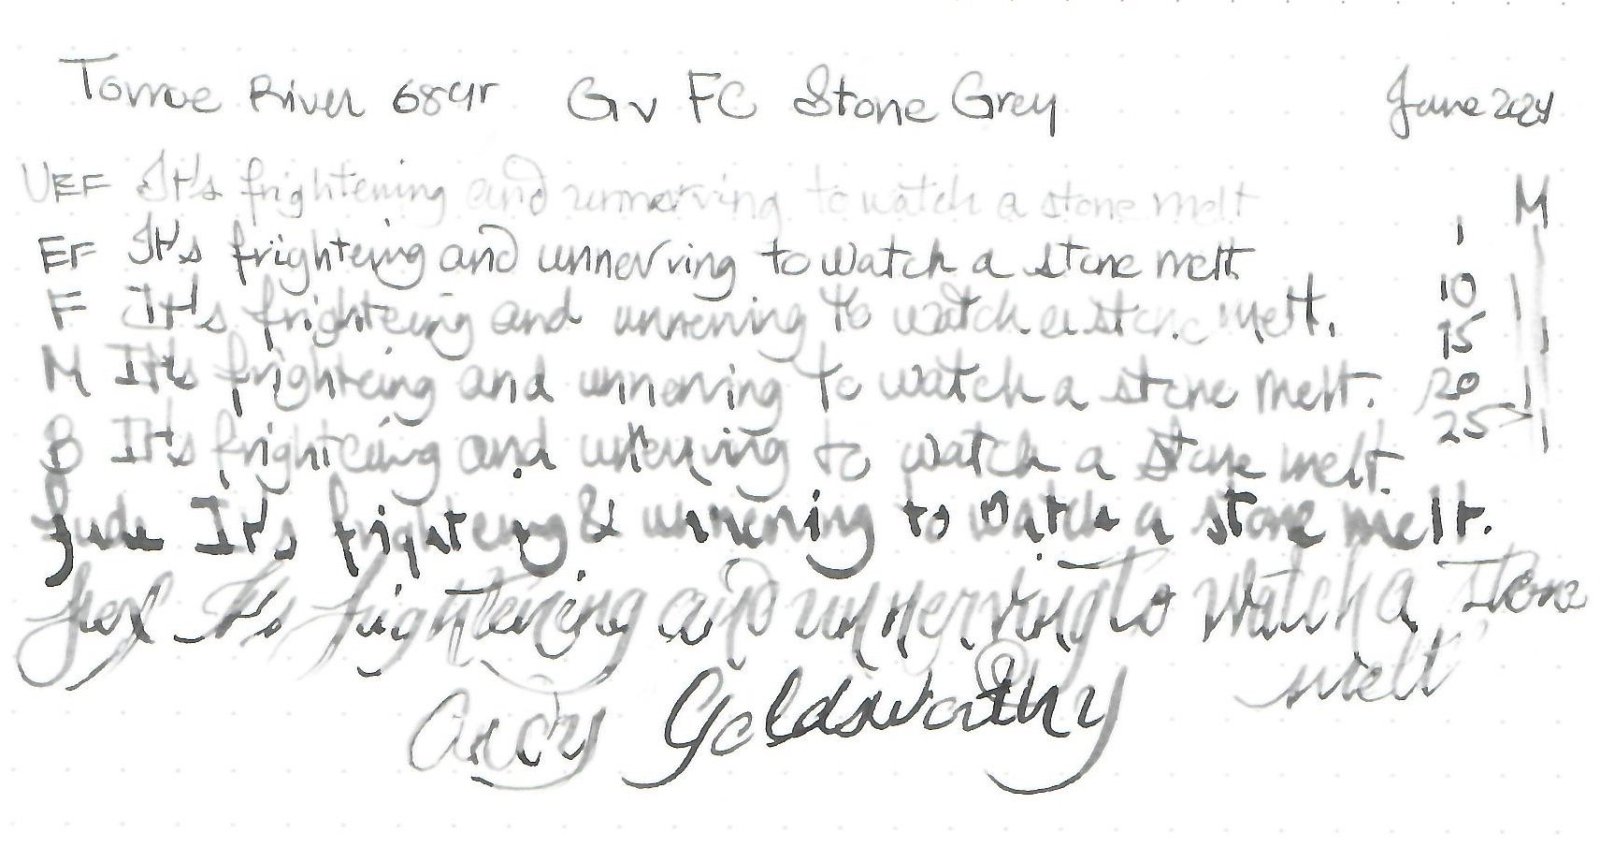 Tomoe River 68gr GvFC Stone Grey June 2024
UEF It's frightening and unnerving to watch a stone melt
EF It's frighteing and unnerving to watch a stone melt
F It's frighteing and unnerving to watch a stone melt.
M It's frighteing and unnerving to watch a stone melt.
B It's frighteing and unnerving to watch a stone melt.
Fude It's frighteing & unnerving to watch a stone melt.
flex It's frightening and unnerving to watch a stone
melt
Andy Goldsworthy
M
1
10
15
20
25